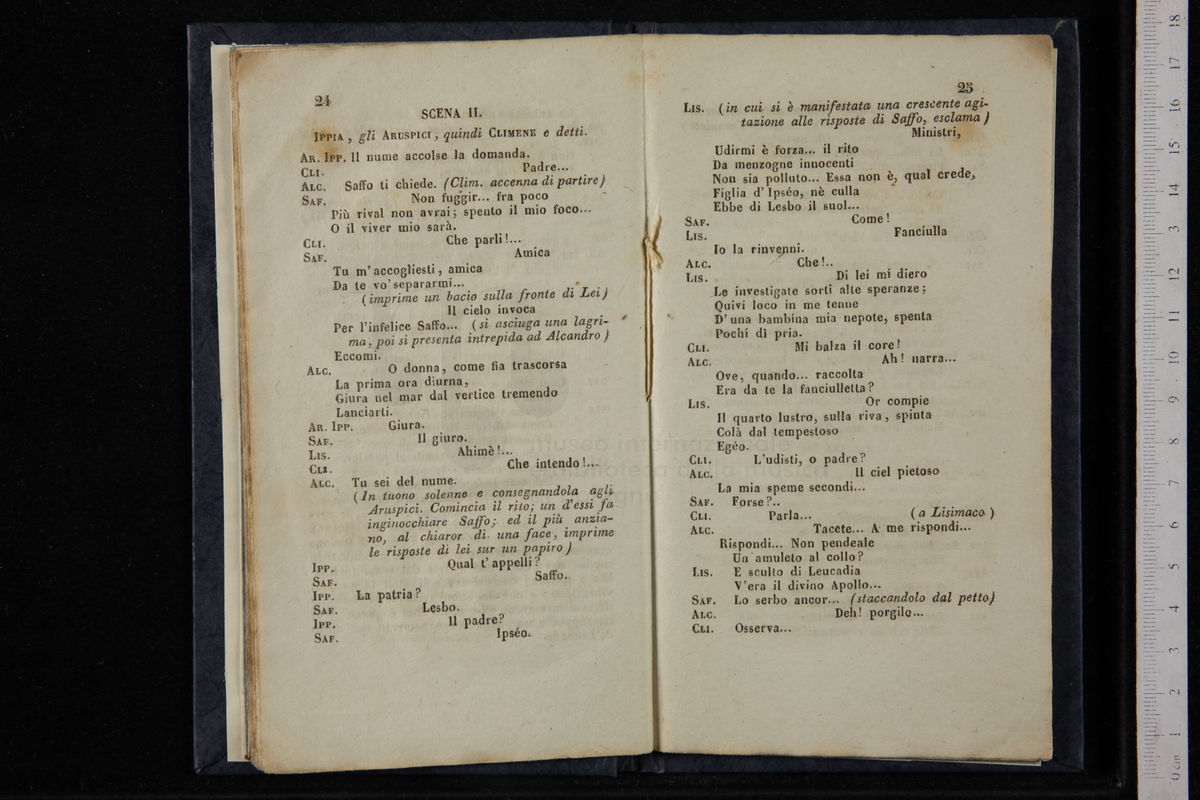 24
SCENA II.
IPPIA, gli ARUSPICI, quindi CLIMENE e detti.
AR. IPP. Il nume accolse la domanda.
CLI. Padre...
ALC. Saffo ti chiede. (Clim. accenna di partire)
SAF. Non fuggir... fra poco
Più rival non avrai; spento il mio foco...
O il viver mio sarà.
CLI. Che parli!...
SAF. Amica
Tu m'accogliesti, amica
Da te vo' separarmi...
(imprime un bacio sulla fronte di Lei)
Il cielo invoca
Per l'infelice Saffo... (si asciuga una lagri-
ma, poi si presenta intrepida ad Alcandro)
Eccomi.
ALC. O donna, come fia trascorsa
La prima ora diurna,
Giura nel mar dal vertice tremendo
Lanciarti.
AR. IPP. Giura.
SAF. Il giuro.
LIS. Ahimè!...
CLI. Che intendo!...
ALC. Tu sei del nume.
(In tuono solenne e consegnandola agli
Aruspici. Comincia il rito; un d'essi fa
inginocchiare Saffo; ed il più anzia-
no, al chiaror di una face, imprime
le risposte di lei sur un papiro)
IPP. Qual t'appelli?
SAF. Saffo.
IPP. La patria?
SAF. Lesbo.
IPP. Il padre?
SAF. Ipséo.
25
LIS. (in cui si è manifestata una crescente agi-
tazione alle risposte di Saffo, esclama)
Ministri,
Udirmi è forza... il rito
Da menzogne innocenti
Non sia polluto... Essa non è, qual crede,
Figlia d'Ipséo, nè culla
Ebbe di Lesbo il suol...
SAF. Come!
LIS. Fanciulla
Io la rinvenni.
ALC. Che!..
LIS. Di lei mi diero
Le investigate sorti alte speranze;
Quivi loco in me tenne
D'una bambina mia nepote, spenta
Pochi dì pria.
CLI. Mi balza il core!
ALC. Ah! narra...
Ove, quando... raccolta
Era da te la fanciulletta?
LIS. Or compie
Il quarto lustro, sulla riva, spinta
Colà dal tempestoso
Egéo.
CLI. L'udisti, o padre?
ALC. Il ciel pietoso
La mia speme secondi...
SAF. Forse?..
CLI. Parla... (a Lisimaco)
ALC. Tacete... A me rispondi...
Rispondi... Non pendeale
Un amuleto al collo?
LIS. E sculto di Leucadia
V'era il divino Apollo...
SAF. Lo serbo ancor... (staccandolo dal petto)
ALC. Deh! porgilo...
CLI. Osserva...